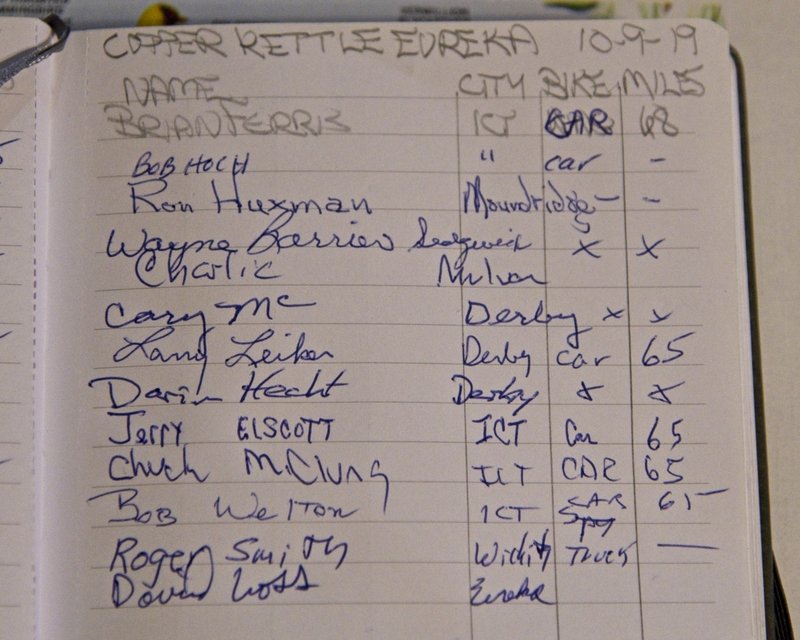 COPPER KETTLE EUREKA 10-9-19
NAME CITY BIKE MILES
BRIAN FERRIS ICT CAR 68
BOB HOCH " car -
Ron Huxman Moundridge - -
Wayne Sedgwick x x
Charlie Mulvane
Cary Mc Derby x x
Larry Leiker Derby car 65
Darin Hecht Derby x x
Jerry ELSCOTT ICT Car 65
Chuck McClung ICT CAR 65
BOB WELTON ICT CAR 65
Roger Smith Wichita Truck —
David Eureka